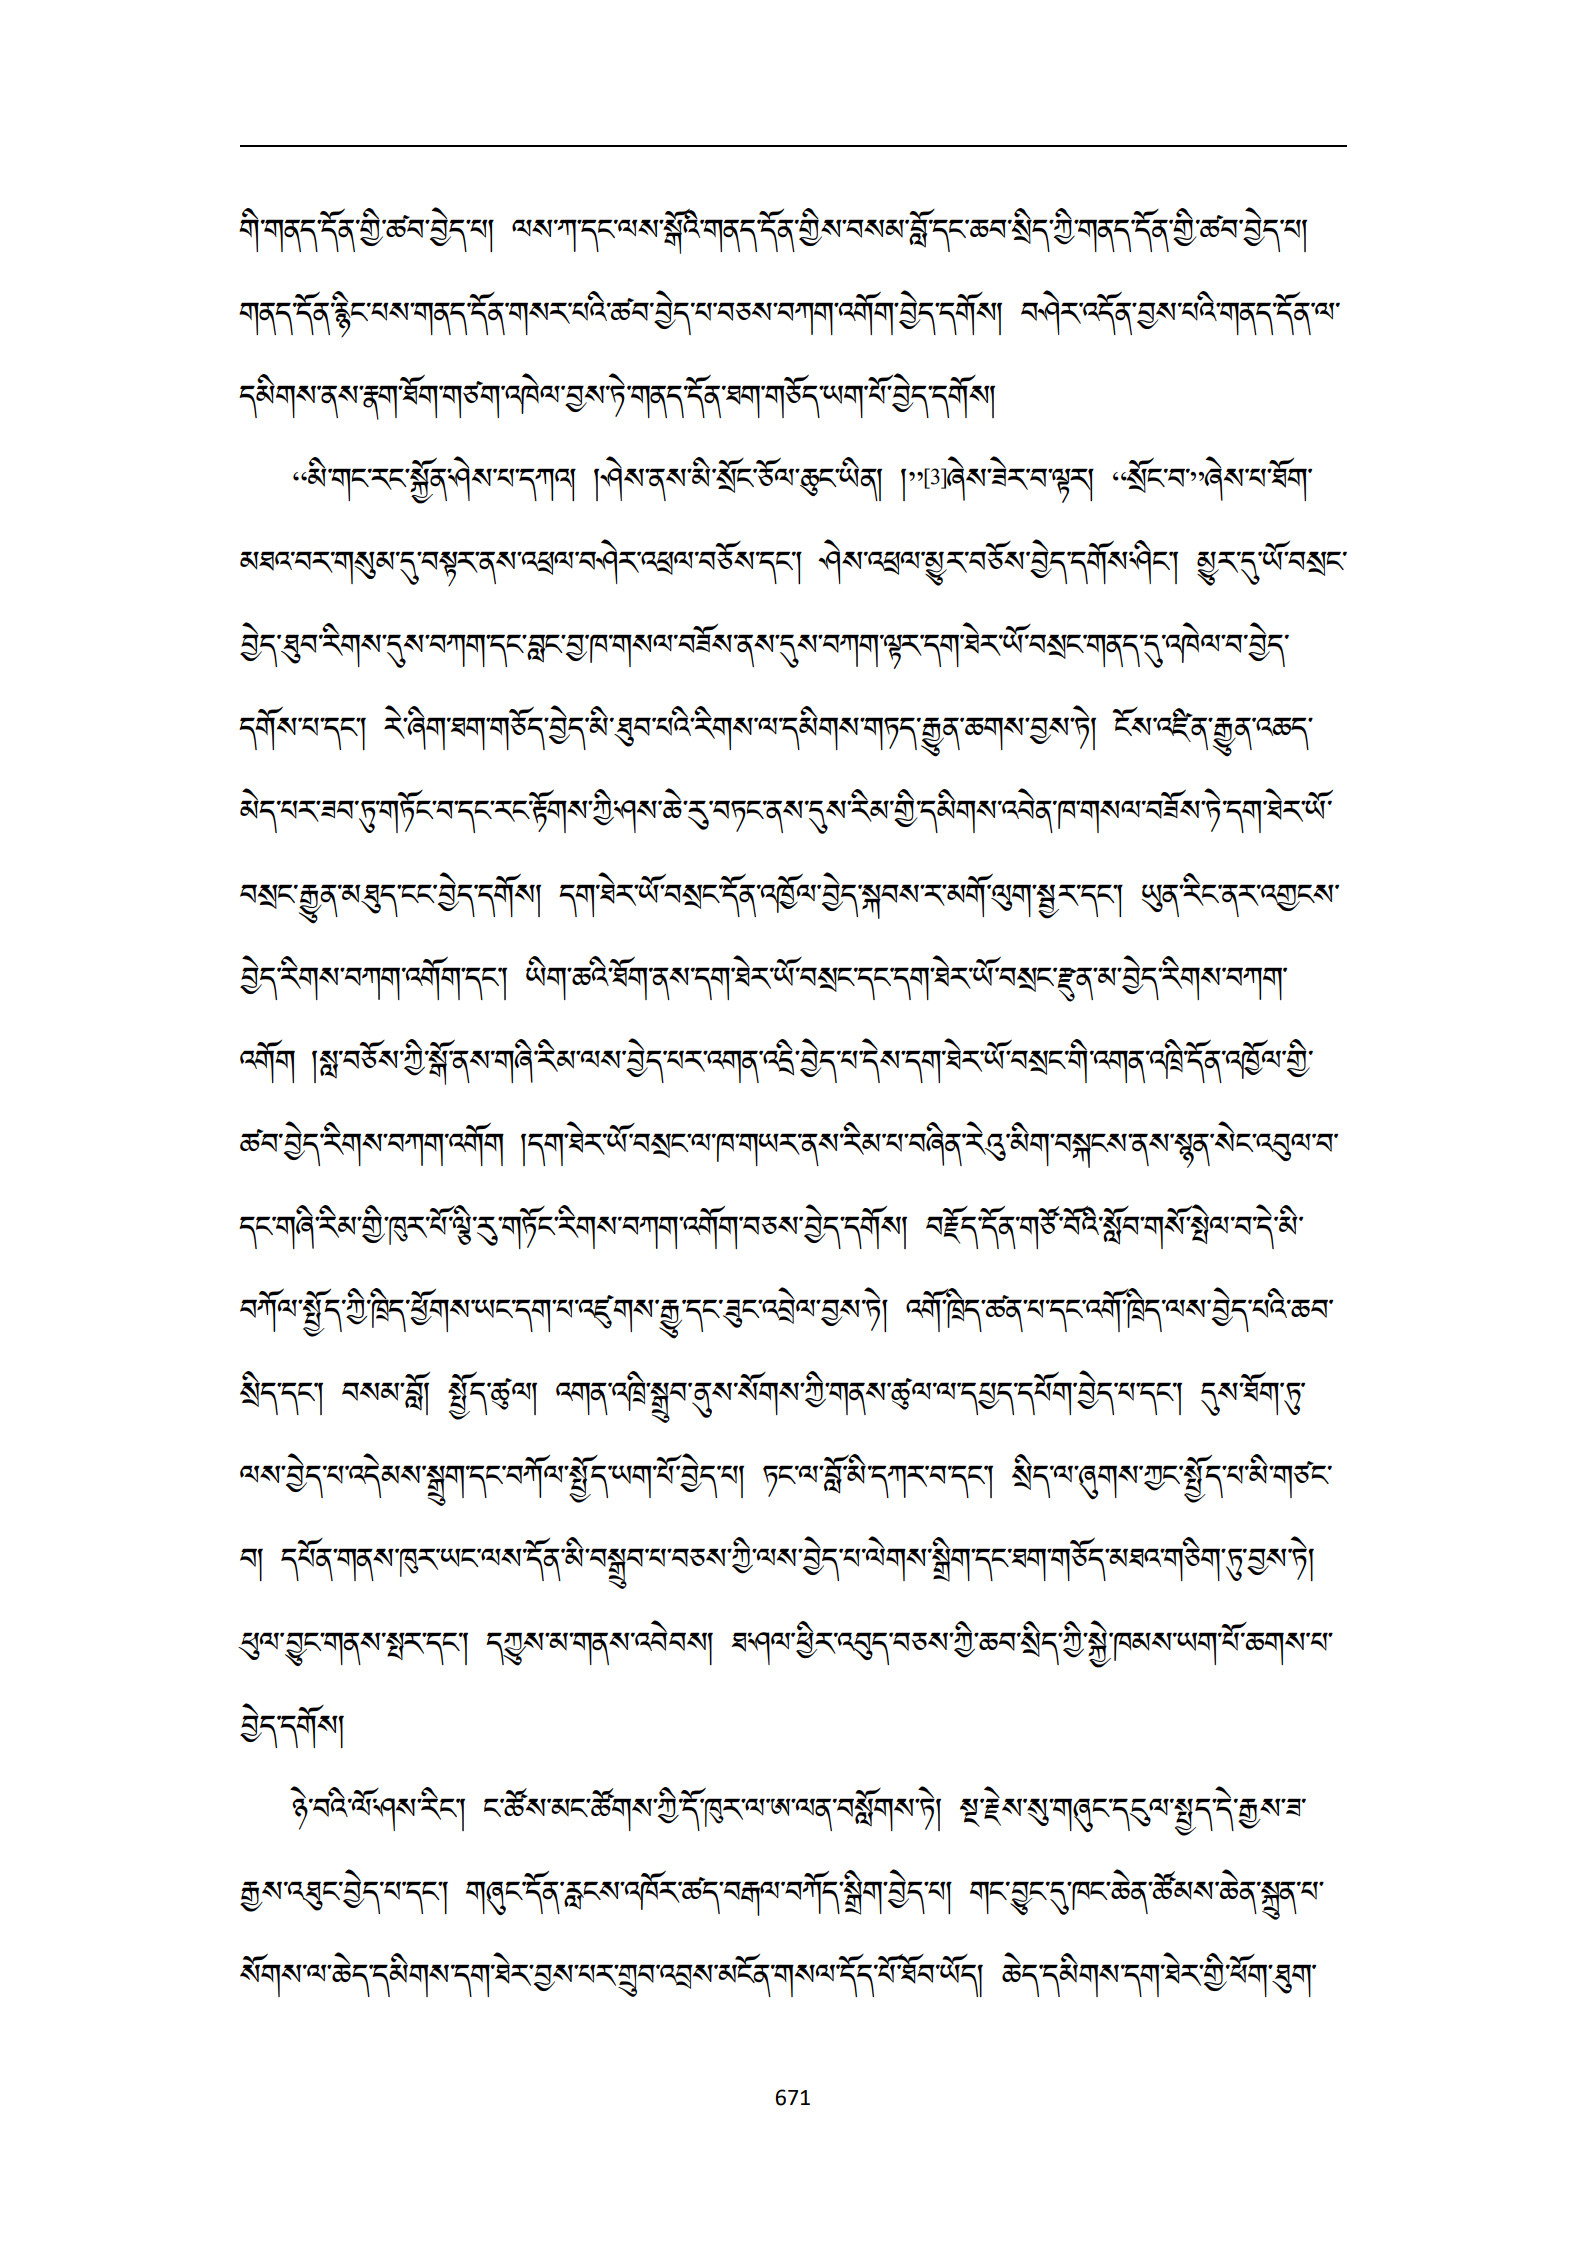 གི་གནད་དོན་གྱི་ཚབ་བྱེད་པ། ལས་ཀ་དང་ལས་སྒོའི་གནད་དོན་གྱིས་བསམ་བློ་དང་ཆབ་སྲིད་ཀྱི་གནད་དོན་གྱི་ཚབ་བྱེད་པ།
གནད་དོན་རྙིང་པས་གནད་དོན་གསར་པའི་ཚབ་བྱེད་པ་བཅས་བཀག་འགོག་བྱེད་དགོས། བཤེར་འདོན་བྱས་པའི་གནད་དོན་ལ་
དམིགས་ནས་རྣག་ཐོག་གཙག་འཁེལ་བྱས་ཏེ་གནད་དོན་ཐག་གཅོད་ཡག་པོ་བྱེད་དགོས།
“མི་གང་རང་སྐྱོན་ཤེས་པ་དཀའ། །ཤེས་ནས་མི་སྲོང་ཅོལ་ཆུང་ཡིན། །”[3]ཞེས་ཟེར་བ་ལྟར། “སྲོང་བ་”ཞེས་པ་ཐོག་
མཐའ་བར་གསུམ་དུ་བསྟར་ནས་འཕྲལ་བཤེར་འཕྲལ་བཅོས་དང་། ཤེས་འཕྲལ་མྱུར་བཅོས་བྱེད་དགོས་ཤིང་། མྱུར་དུ་ཡོ་བསྲང་
བྱེད་ཐུབ་རིགས་དུས་བཀག་དང་བླང་བྱ་ཁ་གསལ་བཟོས་ནས་དུས་བཀག་ལྟར་དག་ཐེར་ཡོ་བསྲང་གནད་དུ་འཁེལ་བ་བྱེད་
དགོས་པ་དང་། རེ་ཞིག་ཐག་གཅོད་བྱེད་མི་ཐུབ་པའི་རིགས་ལ་དམིགས་གཏད་རྒྱུན་ཆགས་བྱས་ཏེ། ངོས་འཛིན་རྒྱུན་འཆད་
མེད་པར་ཟབ་ཏུ་གཏོང་བ་དང་རང་རྟོགས་ཀྱི་ཤས་ཆེ་རུ་བཏང་ནས་དུས་རིམ་གྱི་དམིགས་འབེན་ཁ་གསལ་བཟོས་ཏེ་དག་ཐེར་ཡོ་
བསྲང་རྒྱུན་མཐུད་ངང་བྱེད་དགོས། དག་ཐེར་ཡོ་བསྲང་དོན་འཁྱོལ་བྱེད་སྐབས་ར་མགོ་ལུག་སྦྱར་དང་། ཡུན་རིང་ནར་འགྱངས་
བྱེད་རིགས་བཀག་འགོག་དང་། ཡིག་ཆའི་ཐོག་ནས་དག་ཐེར་ཡོ་བསྲང་དང་དག་ཐེར་ཡོ་བསྲང་རྫུན་མ་བྱེད་རིགས་བཀག་
འགོག །སླ་བཅོས་ཀྱི་སྒོ་ནས་གཞི་རིམ་ལས་བྱེད་པར་འགན་འདྲི་བྱེད་པ་དེས་དག་ཐེར་ཡོ་བསྲང་གི་འགན་འཁྲི་དོན་འཁྱོལ་གྱི་
ཚབ་བྱེད་རིགས་བཀག་འགོག །དག་ཐེར་ཡོ་བསྲང་ལ་ཁ་གཡར་ནས་རིམ་པ་བཞིན་རེའུ་མིག་བསྐངས་ནས་སྙན་སེང་འབུལ་བ་
དང་གཞི་རིམ་གྱི་ཁུར་པོ་ལྕི་རུ་གཏོང་རིགས་བཀག་འགོག་བཅས་བྱེད་དགོས། བརྗོད་དོན་གཙོ་བོའི་སློབ་གསོ་སྤེལ་བ་དེ་མི་
བཀོལ་སྤྱོད་ཀྱི་ཁྲིད་ཕྱོགས་ཡང་དག་པ་འཛུགས་རྒྱུ་དང་ཟུང་འབྲེལ་བྱས་ཏེ། འགོ་ཁྲིད་ཚན་པ་དང་འགོ་ཁྲིད་ལས་བྱེད་པའི་ཆབ་
སྲིད་དང་། བསམ་བློ། སྤྱོད་ཚུལ། འགན་འཁྲི་སྒྲུབ་ནུས་སོགས་ཀྱི་གནས་ཚུལ་ལ་དཔྱད་དཔོག་བྱེད་པ་དང་། དུས་ཐོག་ཏུ་
ལས་བྱེད་པ་འདེམས་སྒྲུག་དང་བཀོལ་སྤྱོད་ཡག་པོ་བྱེད་པ། ཏང་ལ་བློ་མི་དཀར་བ་དང་། སྲིད་ལ་ཞུགས་ཀྱང་སྤྱོད་པ་མི་གཙང་
བ། དཔོན་གནས་ཁུར་ཡང་ལས་དོན་མི་བསྒྲུབ་པ་བཅས་ཀྱི་ལས་བྱེད་པ་ལེགས་སྒྲིག་དང་ཐག་གཅོད་མཐའ་གཅིག་ཏུ་བྱས་ཏེ།
ཕུལ་བྱུང་གནས་སྤར་དང་། དཀྱུས་མ་གནས་འབེབས། ཐ་ཤལ་ཕྱིར་འབུད་བཅས་ཀྱི་ཆབ་སྲིད་ཀྱི་སྐྱེ་ཁམས་ཡག་པོ་ཆགས་པ་
བྱེད་དགོས།
ཉེ་བའི་ལོ་ཤས་རིང་། ང་ཚོས་མང་ཚོགས་ཀྱི་དོ་ཁུར་ལ་ཨ་ལན་བསློགས་ཏེ། སྔ་རྗེས་སུ་གཞུང་དངུལ་སྤྱད་དེ་རྒྱས་ཟ་
རྒྱས་འཐུང་བྱེད་པ་དང་། གཞུང་དོན་རླངས་འཁོར་ཚད་བརྒལ་བཀོད་སྒྲིག་བྱེད་པ། གང་བྱུང་དུ་ཁང་ཆེན་ཚོམས་ཆེན་སྐྲུན་པ་
སོགས་ལ་ཆེད་དམིགས་དག་ཐེར་བྱས་པར་གྲུབ་འབྲས་མངོན་གསལ་དོད་པོ་ཐོབ་ཡོད། ཆེད་དམིགས་དག་ཐེར་གྱི་ཕོག་ཐུག་
671